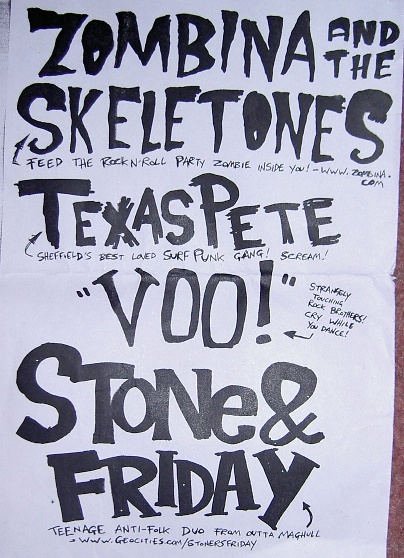 ZOMBINA AND
THE
SKELETONES
FEED THE ROCK N' ROLL PARTY ZOMBIE INSIDE YOU! - WWW.ZOMBINA.
COM
TEXAS PETE
SHEFFIELD'S BEST LOVED SURF PUNK GANG! SCREAM!
"VOO!"
STRANGELY
TOUCHING
ROCK BROTHERS!
CRY WHILE
YOU DANCE!
STONE &
FRIDAY
TEENAGE ANTI-FOLK DUO FROM OUTTA MAGHULL
WWW.GEOCITIES.COM/STONERSFRIDAY